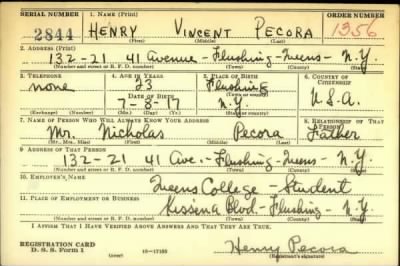 SERIAL NUMBER 1. NAME (Print) ORDER NUMBER
2844 HENRY VINCENT PECORA 1356
(First) (Middle) (Last)
2. ADDRESS (Print)
132-21 41 Avenue - Flushing - Queens - N.Y.
(Number and street or R. F. D. number) (Town) (County) (State)
3. TELEPHONE 4. AGE IN YEARS 5. PLACE OF BIRTH 6. COUNTRY OF CITIZENSHIP
none 23 Flushing
DATE OF BIRTH (Town or county)
7-8-17 N.Y. U.S.A.
(Exchange) (Number) (Mo.) (Day) (Yr.) (State or country)
7. NAME OF PERSON WHO WILL ALWAYS KNOW YOUR ADDRESS 8. RELATIONSHIP OF THAT PERSON
Mr. Nicholas Pecora Father
(Mr., Mrs., Miss) (First) (Middle) (Last)
9. ADDRESS OF THAT PERSON
132-21 41 Ave. - Flushing - Queens - N.Y.
(Number and street or R. F. D. number) (Town) (County) (State)
10. EMPLOYER'S NAME
Queens College - Student
11. PLACE OF EMPLOYMENT OR BUSINESS
Kissena Blvd. - Flushing - N.Y.
(Number and street or R. F. D. number) (Town) (County) (State)
I AFFIRM THAT I HAVE VERIFIED ABOVE ANSWERS AND THAT THEY ARE TRUE.
REGISTRATION CARD
D. S. S. Form 1 (over) 16-17105 Henry Pecora
(Registrant's signature)